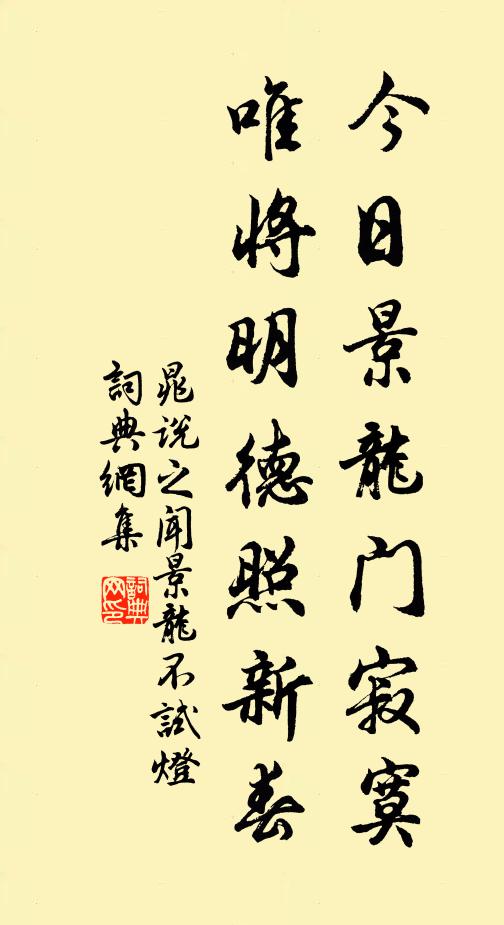 今日景龍门寂寞
唯將明德照新春
晁说之闻景龍不試燈
詞典網集
詞典网印